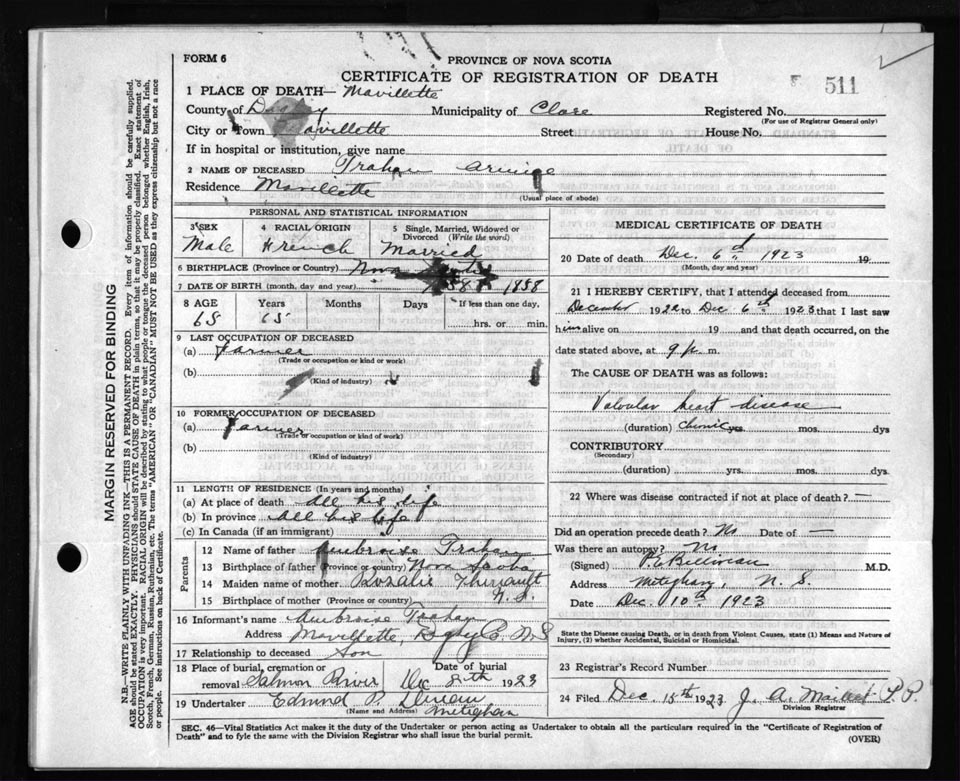 FORM 6
PROVINCE OF NOVA SCOTIA
CERTIFICATE OF REGISTRATION OF DEATH
511
1 PLACE OF DEATH— Mavillette
County of Digby Municipality of Clare Registered No.
(For use of Registrar General only)
City or Town Mavillette Street House No.
If in hospital or institution, give name
2 NAME OF DECEASED Trahan
Residence Mavillette
(Usual place of abode)
PERSONAL AND STATISTICAL INFORMATION
3 SEX 4 RACIAL ORIGIN 5 Single, Married, Widowed or Divorced (Write the word)
Male French Married
6 BIRTHPLACE (Province or Country) Nova
7 DATE OF BIRTH (month, day and year) 1858
8 AGE Years Months Days If less than one day,
65 65 hrs. or min.
9 LAST OCCUPATION OF DECEASED
(a) Farmer
(Trade or occupation or kind of work)
(b)
(Kind of industry)
10 FORMER OCCUPATION OF DECEASED
(a) Farmer
(Trade or occupation or kind of work)
(b)
(Kind of industry)
11 LENGTH OF RESIDENCE (In years and months)
(a) At place of death All his life
(b) In province All his life
(c) In Canada (if an immigrant)
Parents
12 Name of father Ambroise Trahan
13 Birthplace of father (Province or country) Nova Scotia
14 Maiden name of mother Rosalie Thiriault
15 Birthplace of mother (Province or country) N.S.
16 Informant's name Ambroise Trahan
Address Mavillette, Digby Co. N.S
17 Relationship to deceased Son
18 Place of burial, cremation or removal Salmon River Date of burial Dec 8th 1923
19 Undertaker Edmund P.
(Name and Address) Meteghan
MEDICAL CERTIFICATE OF DEATH
20 Date of death Dec. 6th 1923 19
(Month, day and year)
21 I HEREBY CERTIFY, that I attended deceased from
December 1922 to Dec 6th 1923 that I last saw
him alive on 19 and that death occurred, on the
date stated above, at 9 p. m.
The CAUSE OF DEATH was as follows:
Valvular heart disease
(duration) Chronic yrs. mos. dys
CONTRIBUTORY
(Secondary)
(duration) yrs. mos. dys
22 Where was disease contracted if not at place of death? —
Did an operation precede death? No Date of —
Was there an autopsy? No
(Signed) M.D.
Address Meteghan, N. S.
Date Dec. 10th 1923
State the Disease causing Death, or in death from Violent Causes, state (1) Means and Nature of
Injury, (2) whether Accidental, Suicidal or Homicidal.
23 Registrar's Record Number
24 Filed Dec. 15th 1923 J. A.
Division Registrar
SEC. 46—Vital Statistics Act makes it the duty of the Undertaker or person acting as Undertaker to obtain all the particulars required in the "Certificate of Registration of
Death" and to fyle the same with the Division Registrar who shall issue the burial permit.
(OVER)
MARGIN RESERVED FOR BINDING
N.B.—WRITE PLAINLY WITH UNFADING INK—THIS IS A PERMANENT RECORD. Every item of information should be carefully supplied.
AGE should be stated EXACTLY. PHYSICIANS should STATE CAUSE OF DEATH in plain terms, so that it may be properly classified. Exact statement of
OCCUPATION is very important. RACIAL ORIGIN will be described by stating to what people or tongue the deceased person belonged whether English, Irish,
Scotch, French, German, Russian, Ruthenian, etc. The terms "AMERICAN" or "CANADIAN" MUST NOT BE USED as they express citizenship but not a race
or people. See instructions on back of Certificate.